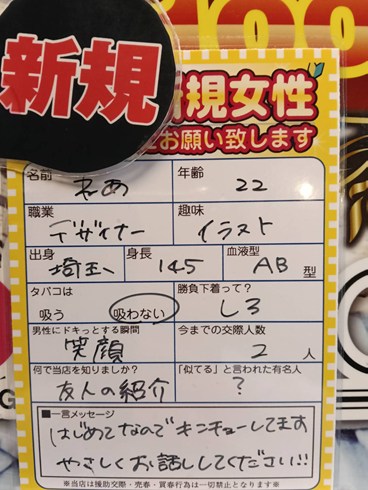 新規
新規女性
お願い致します
名前 れあ 年齢 22
職業 デザイナー 趣味 イラスト
出身 埼玉 身長 145 血液型 AB 型
タバコは 吸う 吸わない 勝負下着って? しろ
男性にドキっとする瞬間 笑顔 今までの交際人数 2 人
何で当店を知りましたか? 友人の紹介 「似てる」と言われた有名人 ?
■一言メッセージ
はじめてなので キンチョーしてます
やさしく お話ししてください!!
※当店は援助交際・売春・買春行為は一切禁止となります※